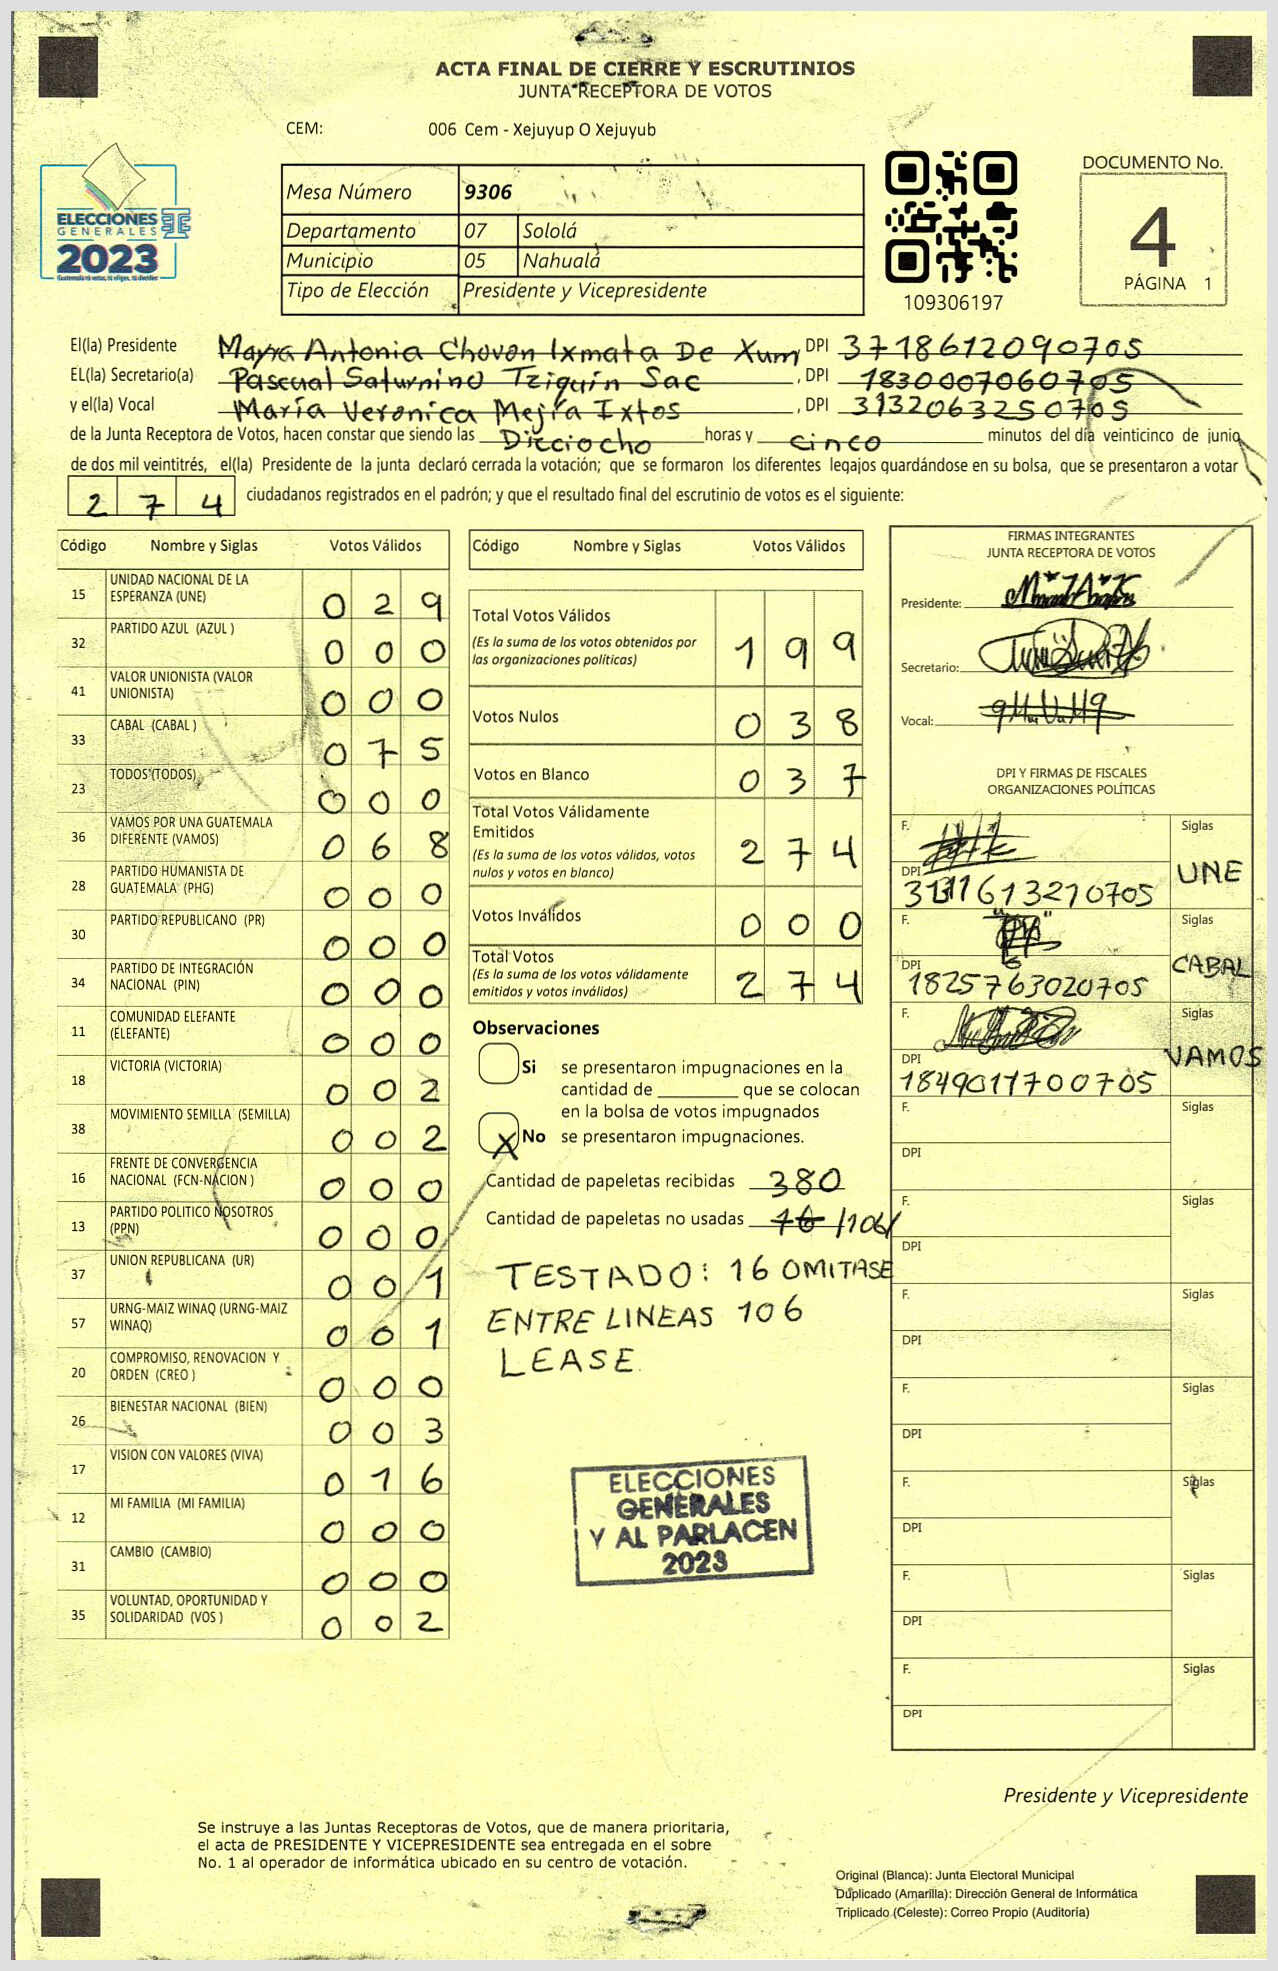 ACTA FINAL DE CIERRE Y ESCRUTINIOS
JUNTA RECEPTORA DE VOTOS
CEM: 006 Cem - Xejuyup O Xejuyub
ELECCIONES
GENERALES
2023
Mesa Número 9306
Departamento 07 Sololá
Municipio 05 Nahualá
Tipo de Elección Presidente y Vicepresidente
109306197
DOCUMENTO No.
4
PÁGINA 1
El(la) Presidente Mayra Antonia Chovon Ixmata De Xum DPI 3718612090705
EL(la) Secretario(a) Pascual Saturnino Tziquin Sac , DPI 1830007060705
y el(la) Vocal María Veronica Mejía Ixtos , DPI 3132063250705
de la Junta Receptora de Votos, hacen constar que siendo las Dieciocho horas y cinco minutos del día veinticinco de junio
de dos mil veintitrés, el(la) Presidente de la junta declaró cerrada la votación; que se formaron los diferentes legajos guardándose en su bolsa, que se presentaron a votar
2 7 4 ciudadanos registrados en el padrón; y que el resultado final del escrutinio de votos es el siguiente:
Código Nombre y Siglas Votos Válidos
15 UNIDAD NACIONAL DE LA
ESPERANZA (UNE) 0 2 9
32 PARTIDO AZUL (AZUL ) 0 0 0
41 VALOR UNIONISTA (VALOR
UNIONISTA) 0 0 0
33 CABAL (CABAL ) 0 7 5
23 TODOS (TODOS) 0 0 0
36 VAMOS POR UNA GUATEMALA
DIFERENTE (VAMOS) 0 6 8
28 PARTIDO HUMANISTA DE
GUATEMALA (PHG) 0 0 0
30 PARTIDO REPUBLICANO (PR) 0 0 0
34 PARTIDO DE INTEGRACIÓN
NACIONAL (PIN) 0 0 0
11 COMUNIDAD ELEFANTE
(ELEFANTE) 0 0 0
18 VICTORIA (VICTORIA) 0 0 2
38 MOVIMIENTO SEMILLA (SEMILLA) 0 0 2
16 FRENTE DE CONVERGENCIA
NACIONAL (FCN-NACION ) 0 0 0
13 PARTIDO POLITICO NOSOTROS
(PPN) 0 0 0
37 UNION REPUBLICANA (UR) 0 0 1
57 URNG-MAIZ WINAQ (URNG-MAIZ
WINAQ) 0 0 1
20 COMPROMISO, RENOVACION Y
ORDEN (CREO ) 0 0 0
26 BIENESTAR NACIONAL (BIEN) 0 0 3
17 VISION CON VALORES (VIVA) 0 1 6
12 MI FAMILIA (MI FAMILIA) 0 0 0
31 CAMBIO (CAMBIO) 0 0 0
35 VOLUNTAD, OPORTUNIDAD Y
SOLIDARIDAD (VOS ) 0 0 2
Código Nombre y Siglas Votos Válidos
Total Votos Válidos
(Es la suma de los votos obtenidos por
las organizaciones políticas) 1 9 9
Votos Nulos 0 3 8
Votos en Blanco 0 3 7
Total Votos Válidamente
Emitidos
(Es la suma de los votos válidos, votos
nulos y votos en blanco) 2 7 4
Votos Inválidos 0 0 0
Total Votos
(Es la suma de los votos válidamente
emitidos y votos inválidos) 2 7 4
Observaciones
Si se presentaron impugnaciones en la
cantidad de ________ que se colocan
en la bolsa de votos impugnados
X No se presentaron impugnaciones.
Cantidad de papeletas recibidas 380
Cantidad de papeletas no usadas 16 /106/
TESTADO: 16 OMITASE
ENTRE LINEAS 106
LEASE.
ELECCIONES
GENERALES
Y AL PARLACEN
2023
FIRMAS INTEGRANTES
JUNTA RECEPTORA DE VOTOS
Presidente:
Secretario:
Vocal:
DPI Y FIRMAS DE FISCALES
ORGANIZACIONES POLÍTICAS
F. Siglas
UNE
DPI
F. Siglas
CABAL
DPI
1825763020705
F. Siglas
VAMOS
DPI
1849011700705
F. Siglas
DPI
F. Siglas
DPI
F. Siglas
DPI
F. Siglas
DPI
F. Siglas
DPI
F. Siglas
DPI
F. Siglas
DPI
Presidente y Vicepresidente
Se instruye a las Juntas Receptoras de Votos, que de manera prioritaria,
el acta de PRESIDENTE Y VICEPRESIDENTE sea entregada en el sobre
No. 1 al operador de informática ubicado en su centro de votación.
Original (Blanca): Junta Electoral Municipal
Duplicado (Amarilla): Dirección General de Informática
Triplicado (Celeste): Correo Propio (Auditoría)